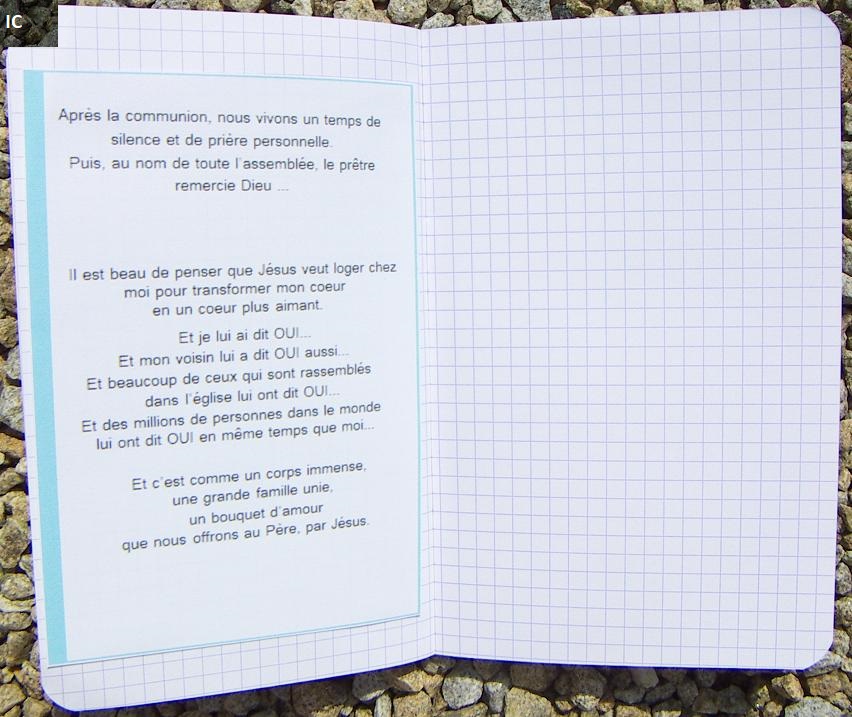 IC
Après la communion, nous vivons un temps de
silence et de prière personnelle.
Puis, au nom de toute l'assemblée, le prêtre
remercie Dieu ...
Il est beau de penser que Jésus veut loger chez
moi pour transformer mon coeur
en un coeur plus aimant.
Et je lui ai dit OUI...
Et mon voisin lui a dit OUI aussi...
Et beaucoup de ceux qui sont rassemblés
dans l'église lui ont dit OUI...
Et des millions de personnes dans le monde
lui ont dit OUI en même temps que moi...
Et c'est comme un corps immense,
une grande famille unie,
un bouquet d'amour
que nous offrons au Père, par Jésus.